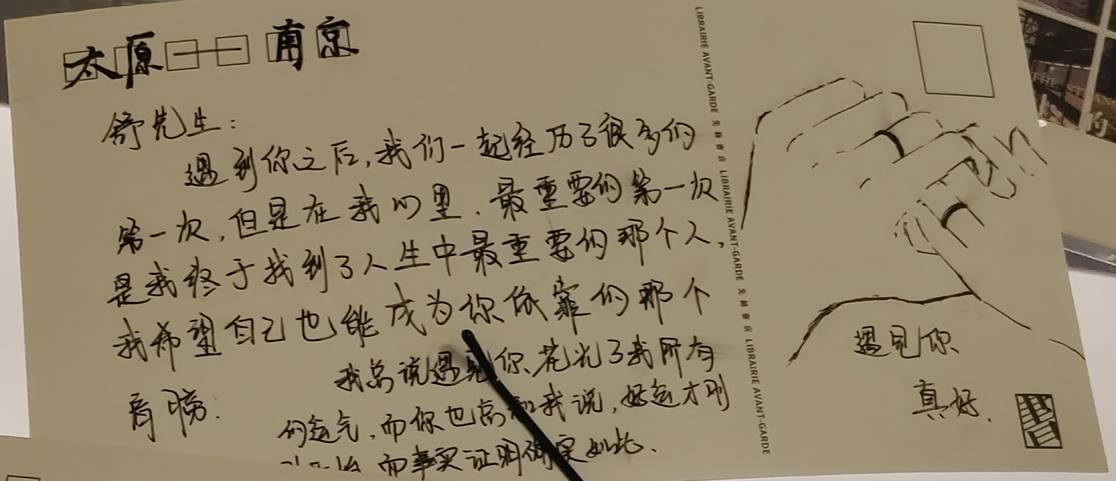 太原一南京
舒先生：
遇到你之后，我们一起经历了很多的
第一次，但是在我心里，最重要的第一次
是我终于找到了人生中最重要的那个人，
我希望自己也能成为你依靠的那个
肩膀.
我总说遇见你花光了我所有
的运气，而你也总和我说，好运才刚
而事实证明确实如此.
LIBRAIRIE AVANT-GARDE 先锋书店 LIBRAIRIE AVANT-GARDE 先锋书店 LIBRAIRIE AVANT-GARDE
遇见你
真好.